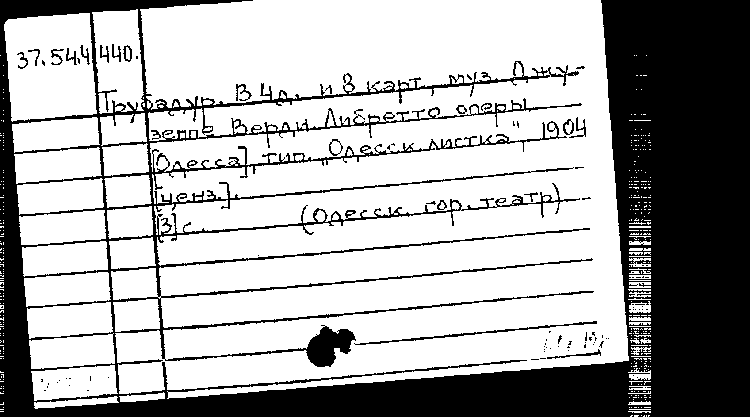 37.54.4 440.
Трубадур. В 4 д. и 8 карт., муз. Джу-
зеппе Верди. Либретто оперы
[Одесса], тип. „Одесск. листка", 1904
[ценз.].
[3] с. (Одесск. гор. театр)